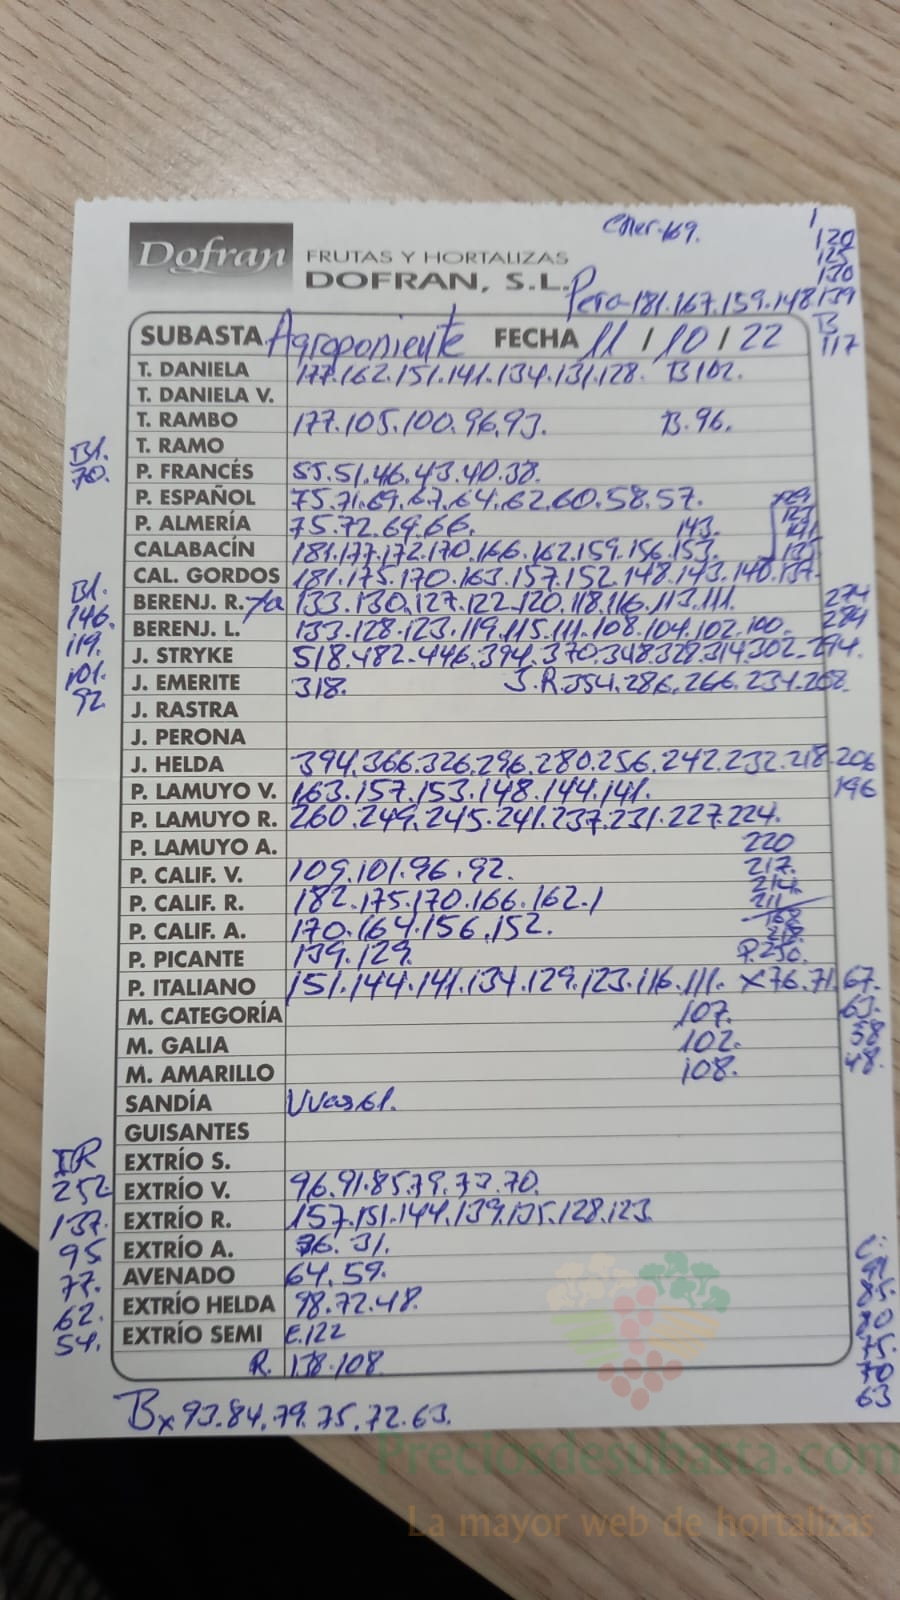 Dofran
FRUTAS Y HORTALIZAS
DOFRAN, S.L.
Cher-169.
1
120
125
130
139
B
117
Pera-181.167.159.148
SUBASTA Agroponiente FECHA 11 / 10 / 22
T. DANIELA 177.162.151.141.134.131.128. B102.
T. DANIELA V.
T. RAMBO 177.105.100.96.93. B.96.
T. RAMO
Bl.
70.
P. FRANCÉS 55.51.46.43.40.38.
P. ESPAÑOL 75.71.69.67.64.62.60.58.57.
P. ALMERÍA 75.72.69.66. 143.
CALABACÍN 181.177.172.170.166.162.159.156.153.
CAL. GORDOS 181.175.170.163.157.152.148.143.140.137.
Bl.
146.
119.
101.
92.
BERENJ. R. 133.130.127.122.120.118.116.113.111.
BERENJ. L. 133.128.123.119.115.111.108.104.102.100.
274
284
J. STRYKE 518.482.446.394.370.348.328.314.302.294.
J. EMERITE 318. J.R.354.286.266.234.208.
J. RASTRA
J. PERONA
J. HELDA 394.366.326.296.280.256.242.232.218.206
196
P. LAMUYO V. 163.157.153.148.144.141.
P. LAMUYO R. 260.249.245.241.237.231.227.224.
220
217.
214.
211
P. LAMUYO A.
P. CALIF. V. 109.101.96.92.
P. CALIF. R. 182.175.170.166.162.1
P. CALIF. A. 170.164.156.152.
P. PICANTE 139.129. P.250.
P. ITALIANO 151.144.141.134.129.123.116.111. x76.71.67.
63.
58
48.
M. CATEGORÍA 107.
M. GALIA 102.
M. AMARILLO 108.
SANDÍA Uvas 61.
GUISANTES
EXTRÍO S.
IR
252
137.
95
77.
62.
54.
EXTRÍO V. 96.91.85.79.73.70.
EXTRÍO R. 157.151.144.139.135.128.123
EXTRÍO A. 36.31.
AVENADO 64.59.
EXTRÍO HELDA 98.72.48.
EXTRÍO SEMI E.122
R. 138.108.
85.
80
75.
70
63
Bx93.84.79.75.72.63.
Preciosdesubasta.com
La mayor web de hortalizas